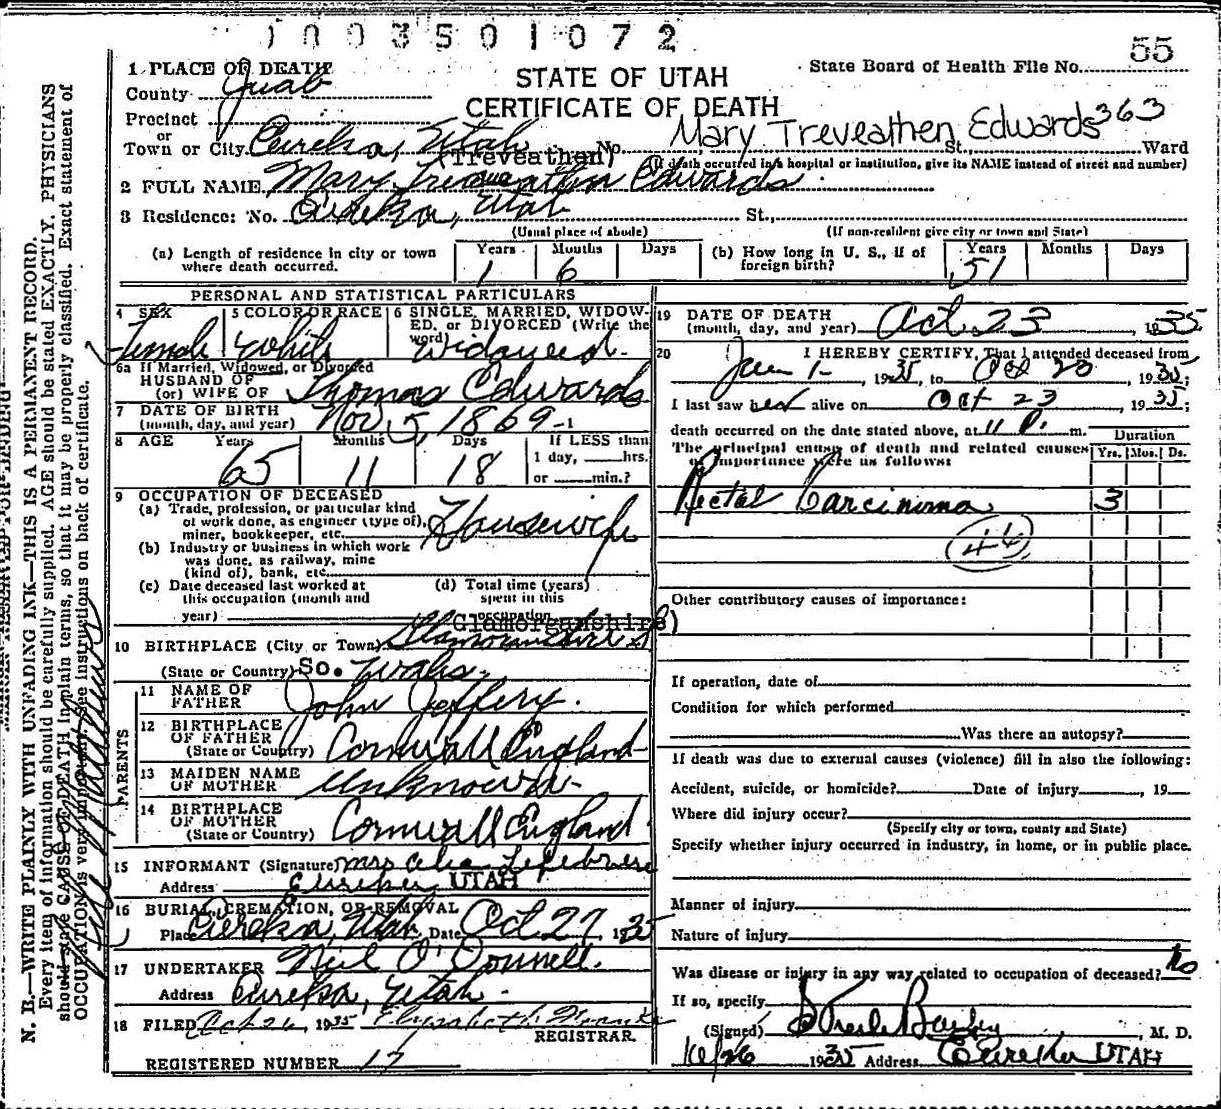 1003501072
55
1 PLACE OF DEATH
STATE OF UTAH
State Board of Health File No.
County Juab
CERTIFICATE OF DEATH
Precinct
or
Mary Treveathen Edwards 363
Town or City Eureka, Utah No. St., Ward
(If death occurred in a hospital or institution, give its NAME instead of street and number)
(Treveathen)
2 FULL NAME Mary Edwards
3 Residence: No. Eureka, Utah St.,
(Usual place of abode) (If non-resident give city or town and State)
(a) Length of residence in city or town where death occurred. Years 1 Months 6 Days
(b) How long in U. S., if of foreign birth? Years 51 Months Days
PERSONAL AND STATISTICAL PARTICULARS
4 SEX Female
5 COLOR OR RACE White
6 SINGLE, MARRIED, WIDOWED, or DIVORCED (Write the word) Widowed
6a If Married, Widowed, or Divorced
HUSBAND OF
(or) WIFE OF Thomas Edwards
7 DATE OF BIRTH
(month, day, and year) Nov 5, 1869
8 AGE Years 65 Months 11 Days 18 If LESS than 1 day, hrs. or min.?
9 OCCUPATION OF DECEASED
(a) Trade, profession, or particular kind of work done, as engineer (type of), miner, bookkeeper, etc. Housewife
(b) Industry or business in which work was done, as railway, mine (kind of), bank, etc.
(c) Date deceased last worked at this occupation (month and year)
(d) Total time (years) spent in this occupation
Glamorganshire)
10 BIRTHPLACE (City or Town)
(State or Country) So. Wales
PARENTS
11 NAME OF FATHER John Jeffery
12 BIRTHPLACE OF FATHER
(State or Country) Cornwall England
13 MAIDEN NAME OF MOTHER Unknown
14 BIRTHPLACE OF MOTHER
(State or Country) Cornwall England
15 INFORMANT (Signature) Mrs
Address Eureka UTAH
16 BURIAL, CREMATION, OR REMOVAL
Place Eureka, Utah Date Oct 27 1935
17 UNDERTAKER Neil O'Donnell
Address Eureka, Utah
18 FILED Oct 26, 1935 Elizabeth
REGISTRAR.
REGISTERED NUMBER 17
19 DATE OF DEATH
(month, day, and year) Oct 23, 1935
20 I HEREBY CERTIFY, That I attended deceased from
Jan 1, 1935, to Oct 20 1935;
I last saw her alive on Oct 23, 1935;
death occurred on the date stated above, at 11 P. m.
Duration
The principal cause of death and related causes of importance were as follows: Yrs. Mos. Ds.
Rectal Carcinoma 3
46
Other contributory causes of importance:
If operation, date of
Condition for which performed
Was there an autopsy?
If death was due to external causes (violence) fill in also the following:
Accident, suicide, or homicide? Date of injury, 19
Where did injury occur?
(Specify city or town, county and State)
Specify whether injury occurred in industry, in home, or in public place.
Manner of injury
Nature of injury
Was disease or injury in any way related to occupation of deceased? No
If so, specify
(Signed) Steele Bailey, M. D.
10/26 1935 Address Eureka UTAH
N. B.—WRITE PLAINLY WITH UNFADING INK—THIS IS A PERMANENT RECORD.
Every item of information should be carefully supplied. AGE should be stated EXACTLY. PHYSICIANS
should state CAUSE OF DEATH in plain terms, so that it may be properly classified. Exact statement of
OCCUPATION is very important. See instructions on back of certificate.